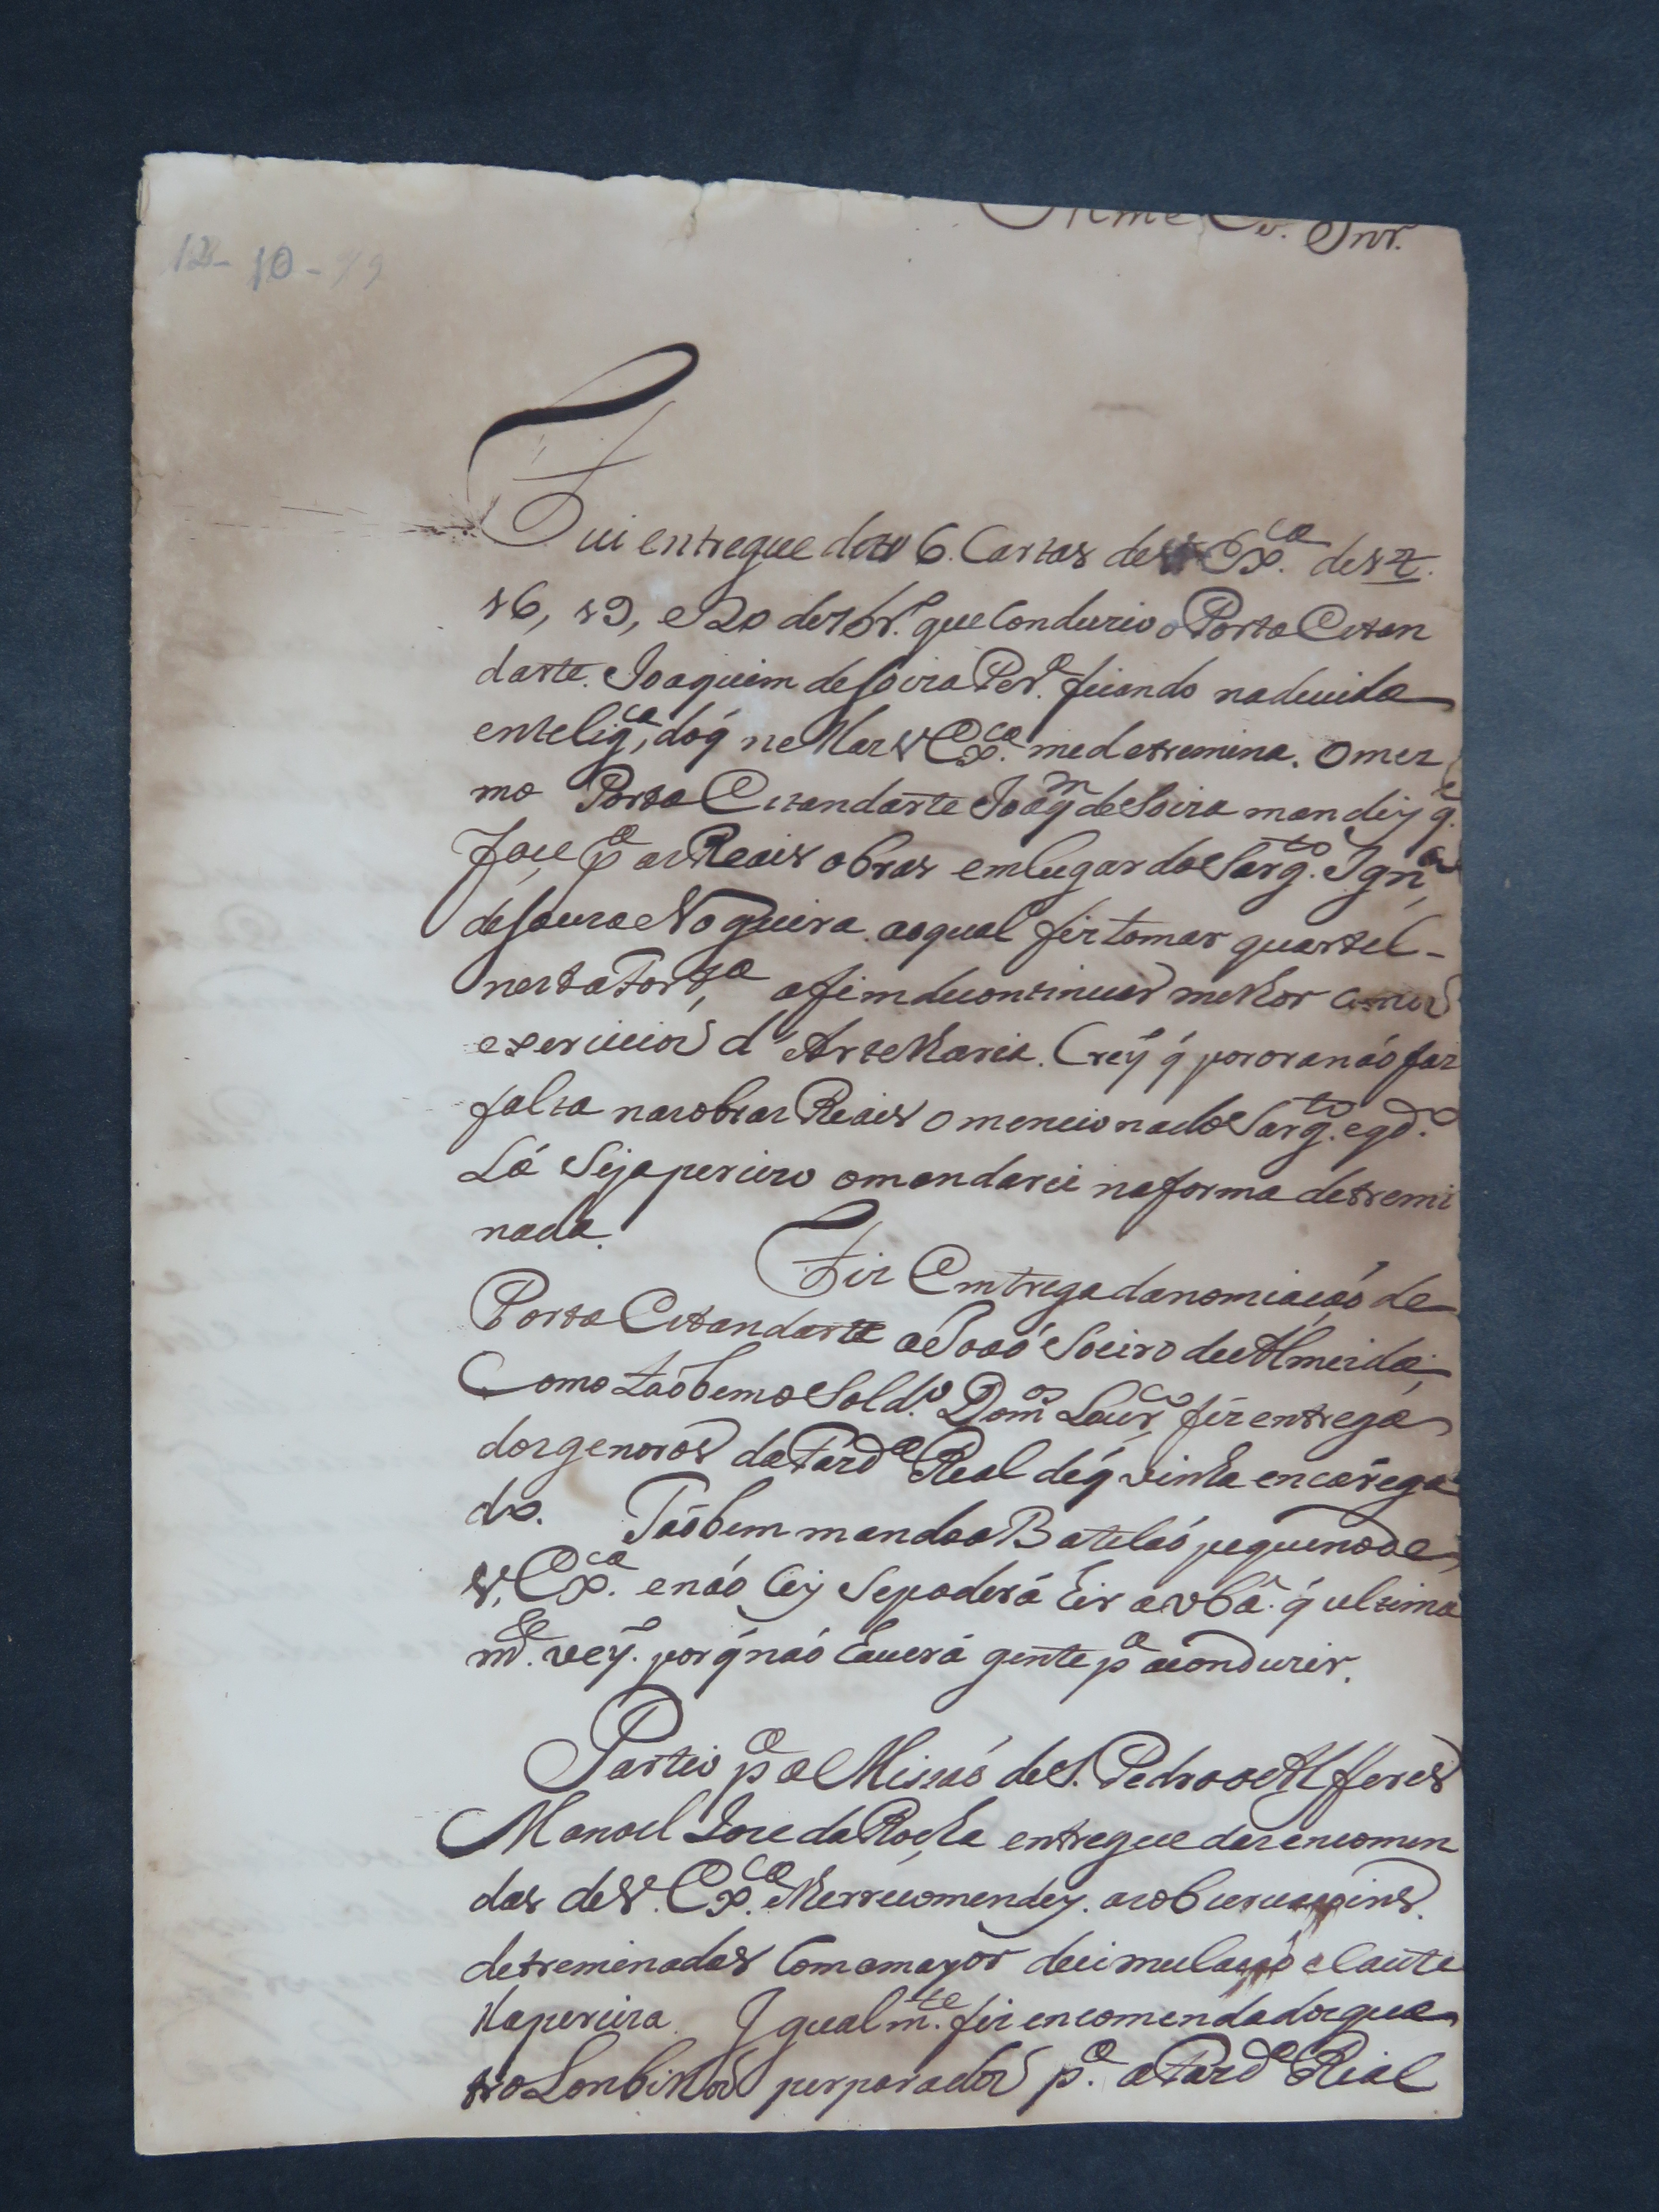 Illmo. e Ex. Snr.
12-10-79
Fui entregue dezo 6. Cartas de V. Exca. de 14.
16, 19, e 20 de 7br.º que Condurio o Porta Estan
darte. Joaquim de Soiza Per.ª ficando na devida
enteligca, do q̃ nellas V Exca. me detremina. O mes
mo Porta Estandarte Joaqm de Soiza mandey q.e
face pa as Reais obras em lugar do Sargto. Ignco
de Souza Nogueira aoqual fiz tomar quartel -
nesta Fortza, afim de continuar melhor com os
exercicios d'Artelharia. Crey q̃ por ora não faz
falta nas obras Reais o mencionado Sargto. e qdo.
Lá Seja percizo o mandarei na forma detremi
nada.
Fiz Emtrega da nomiação de
Porta Estandarte a João Soeiro de Almeida,
Como taõbem o Soldo. Domos Laurco, fiz entrega
dos generos da Fazda Real de q̃ vinha encárega
do. Taõbem mando o Batelaó pequeno de
V. Exca. e naó Sey Se poderá hir a vbá. q̃ ultima
mte. vey. por q̃ naó haverá gente pa a conduzir.
Partio pa a Missaó de S. Pedro o Alferes
Manoel Joze da Rocha entregue das encomen
das de V. Exca. lhe rrecomendey. as
detreminadas Com a mayor decimulação e Caute
lla perciza. Igualmte. fiz encomenda dos qua
tro Lonbilhos perparados pa. a Fazda Rial